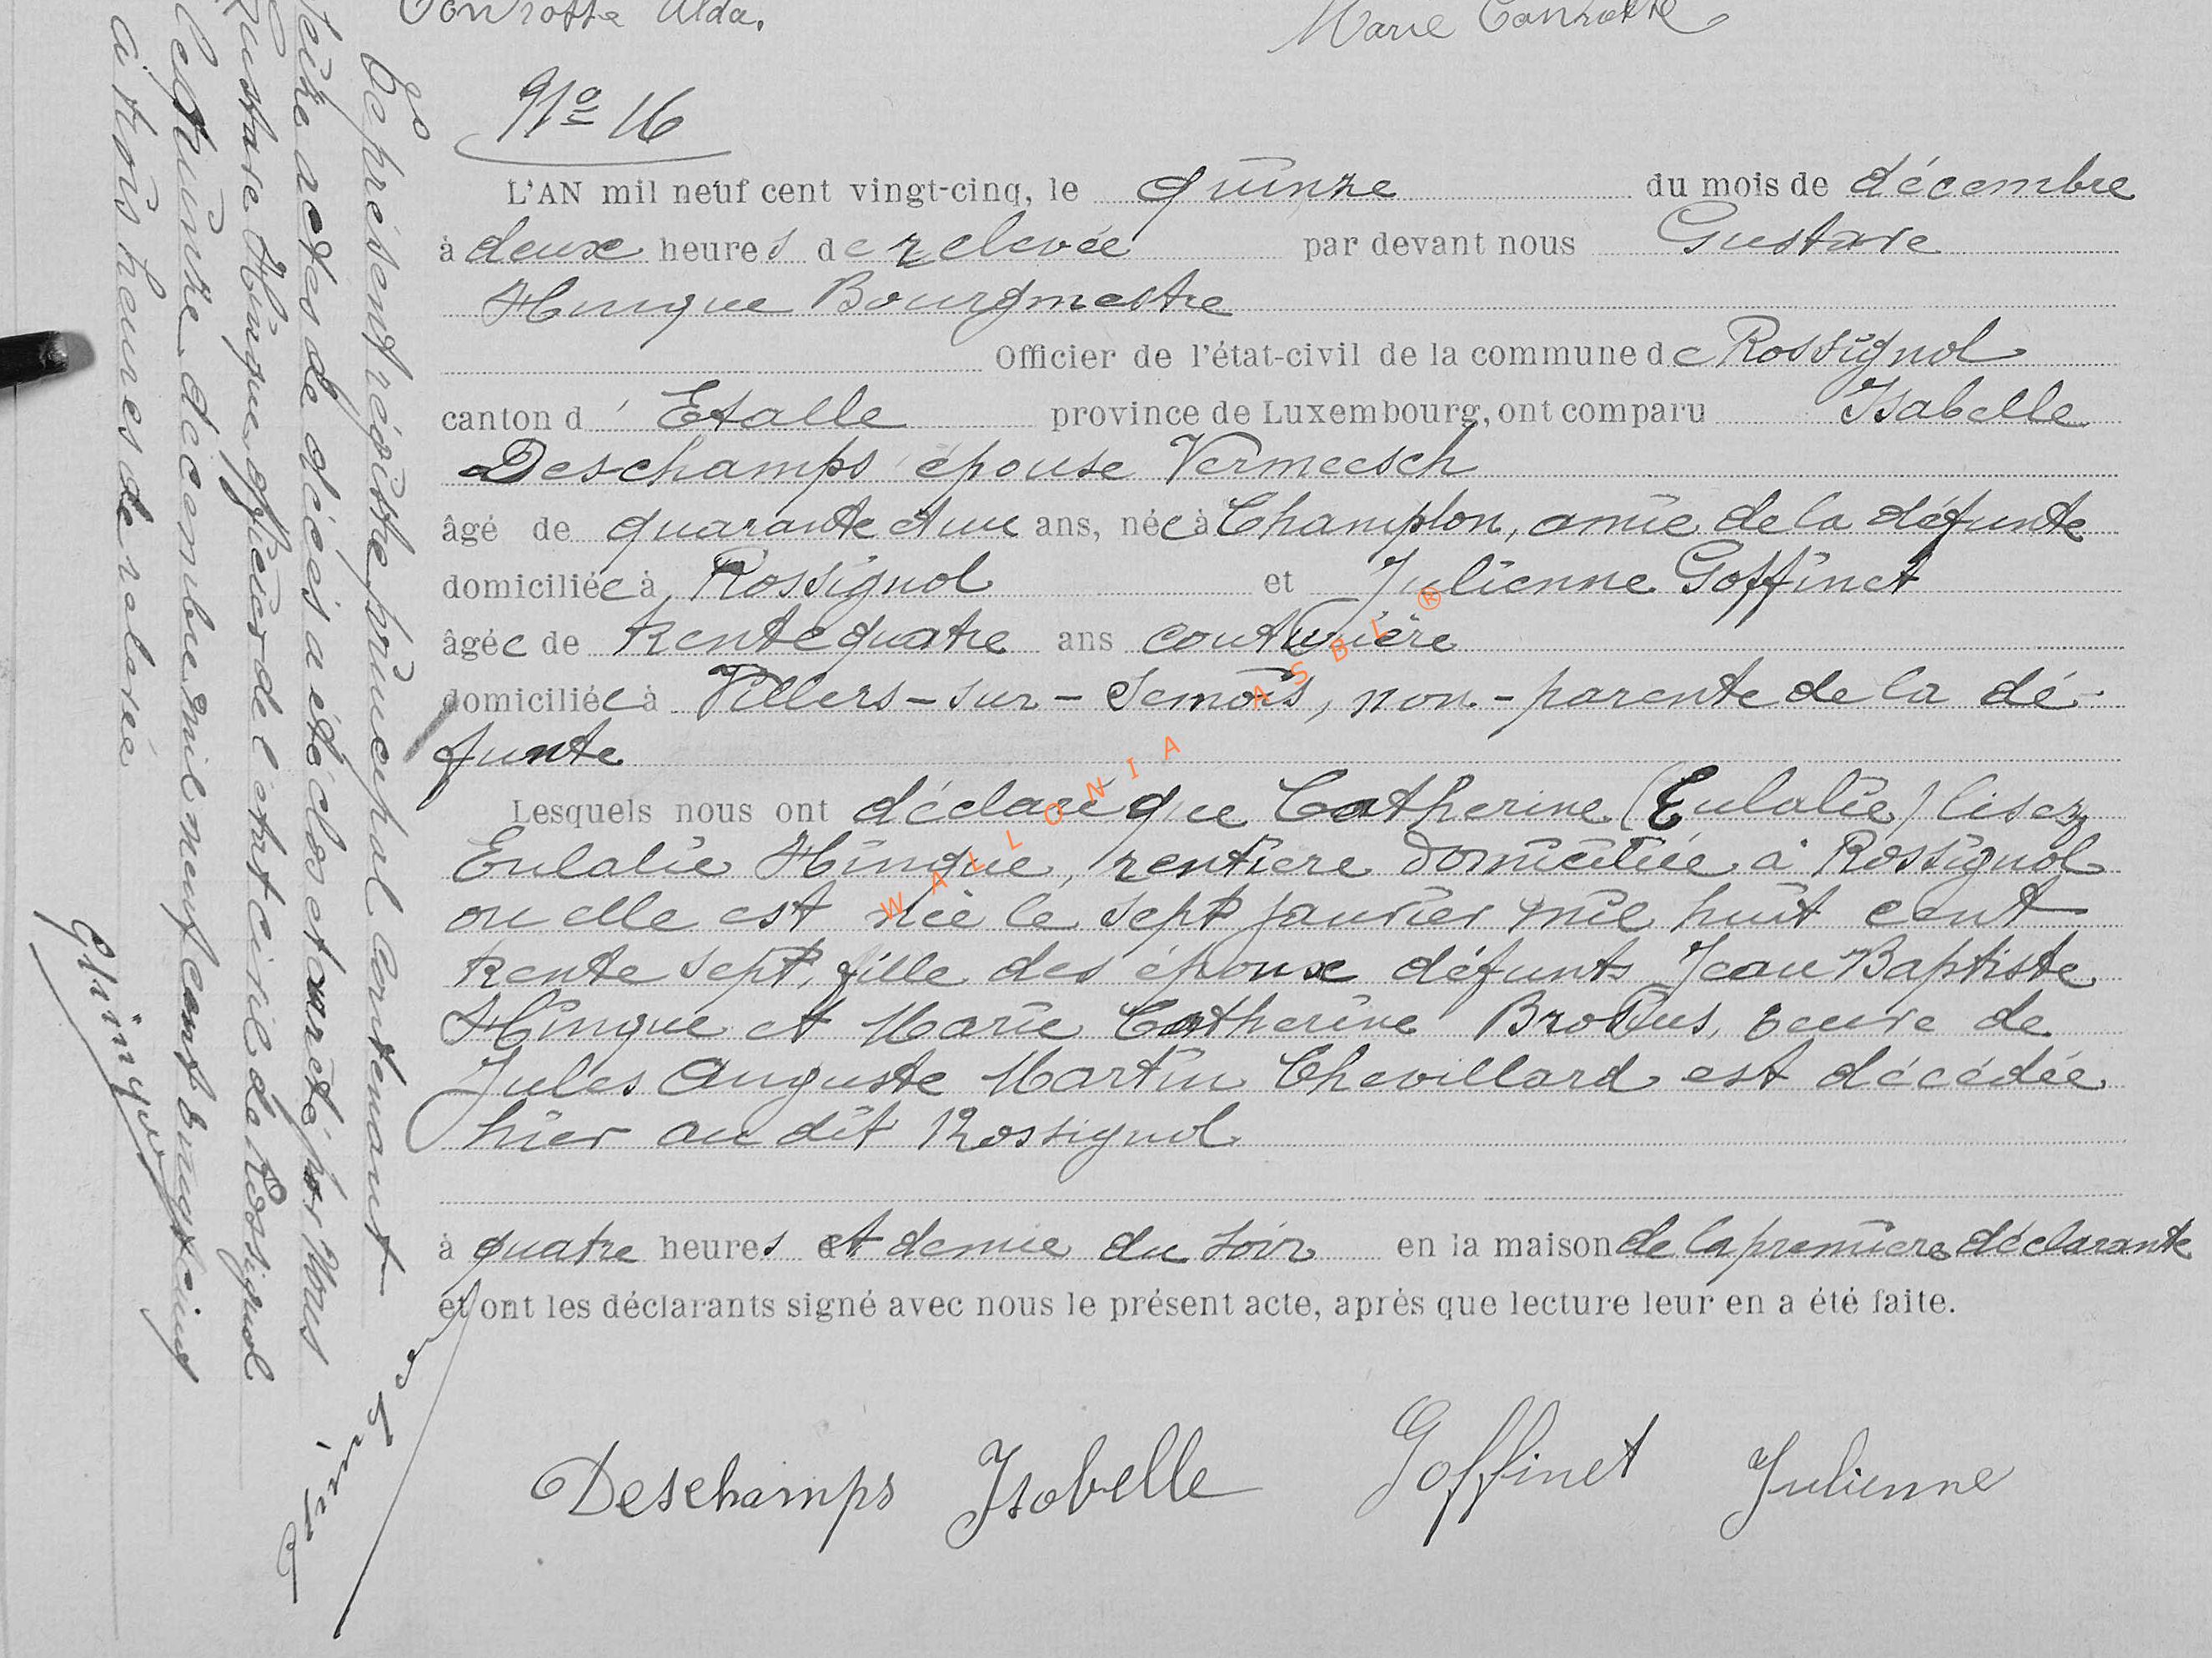 Conrotte Alda.
Marie Conrotte
No 16
L'AN mil neuf cent vingt-cinq, le quinze du mois de décembre
à deux heures de relevée par devant nous Gustave
Hinque Bourgmestre
Officier de l'état-civil de la commune de Rossignol
canton d'Etalle province de Luxembourg, ont comparu Isabelle
Deschamps épouse Vermeesch
âgé de quarante et un ans, née à Champlon, amie de la défunte
domiciliée à Rossignol et Julienne Goffinet
âgée de trente quatre ans couturière
domiciliée à Villers-sur-Semois, non-parente de la dé-
funte
Lesquels nous ont déclaré que Catherine (Eulalie) lisez
Eulalie Hinque, rentière domiciliée à Rossignol
ou elle est née le sept janvier mil huit cent
trente sept, fille des époux défunts Jean Baptiste
Hinque et Marie Catherine Brolius, veuve de
Jules Auguste Martin Chevillard est décédée
hier au dit Rossignol
à quatre heures et demie du soir en la maison de la première déclarante
et ont les déclarants signé avec nous le présent acte, après que lecture leur en a été faite.
Deschamps Isabelle Goffinet Julienne
GHinque
Le présent registre principal contenant
seize actes de décès a été clos et arrêté par Nous
Gustave Hinque, officier de l'état civil de Rossignol
le quinze décembre mil neuf cent vingt cinq
à trois heures de relevée
GHinque
WALLONIA ASBL ®